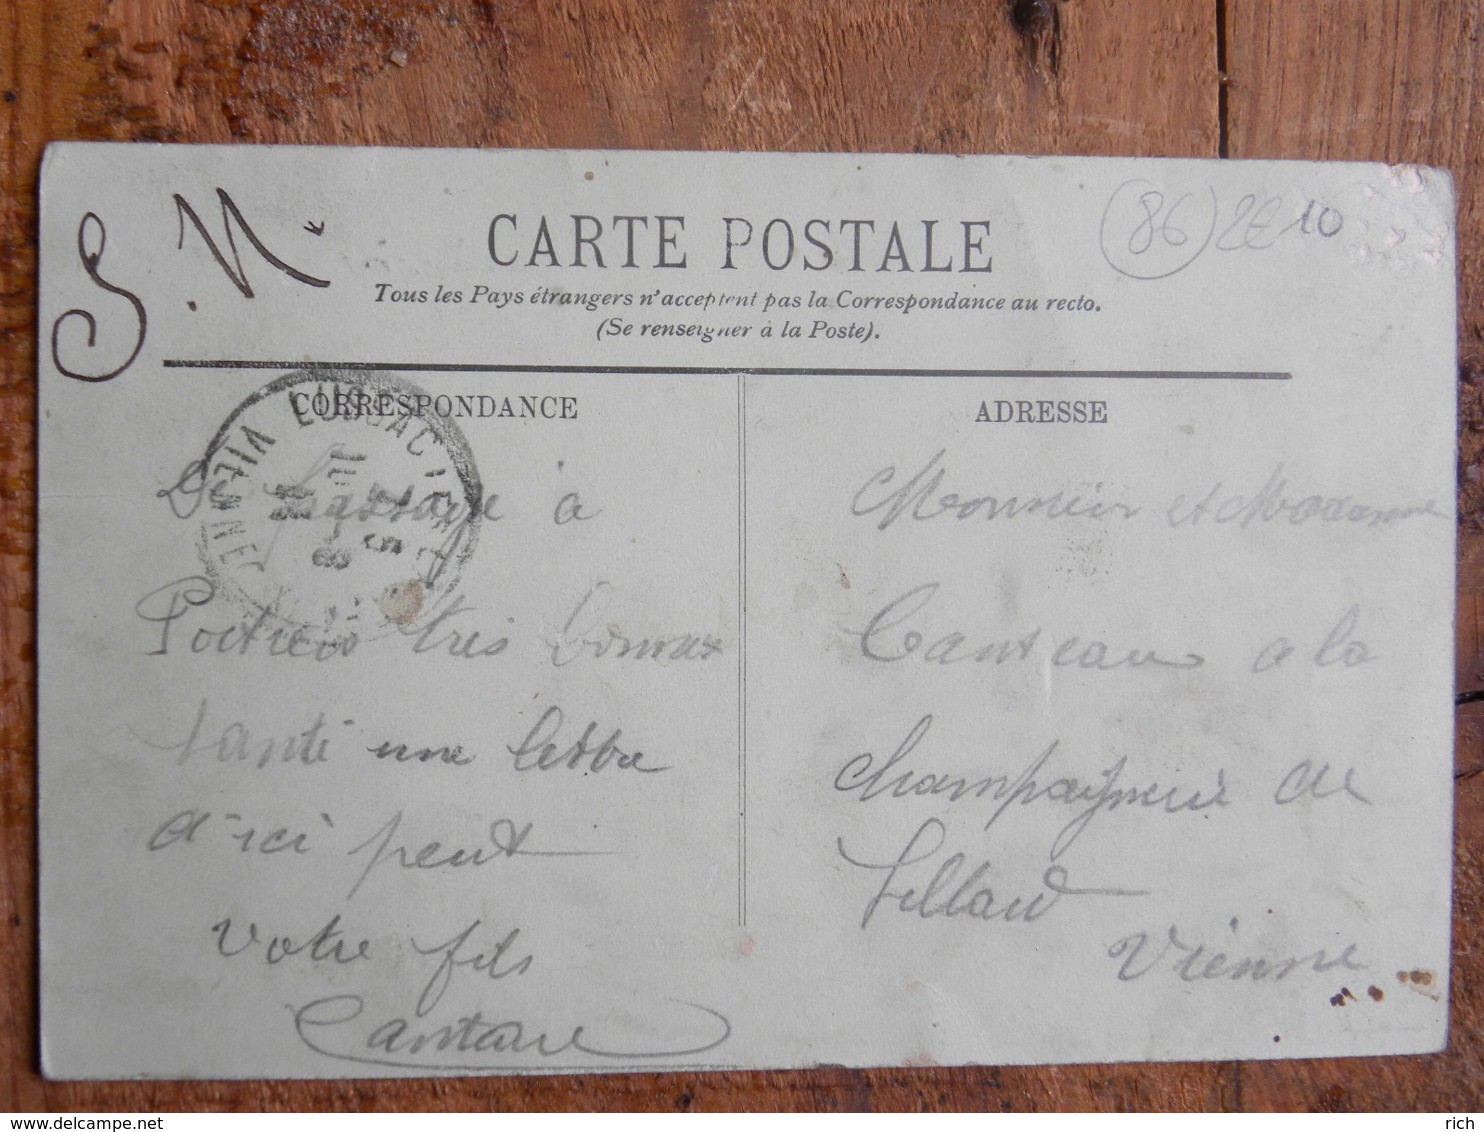 S.M.
CARTE POSTALE
(86) 2€ 10
Tous les Pays étrangers n'acceptent pas la Correspondance au recto.
(Se renseigner à la Poste).
CORRESPONDANCE
De Passage à
Poitiers très bonne
santé une lettre
d'ici peut
votre fils
ADRESSE
Monsieur et Madame
a la
de
Vienne
LUSSAC
VIENNE
delcampe.net
rich